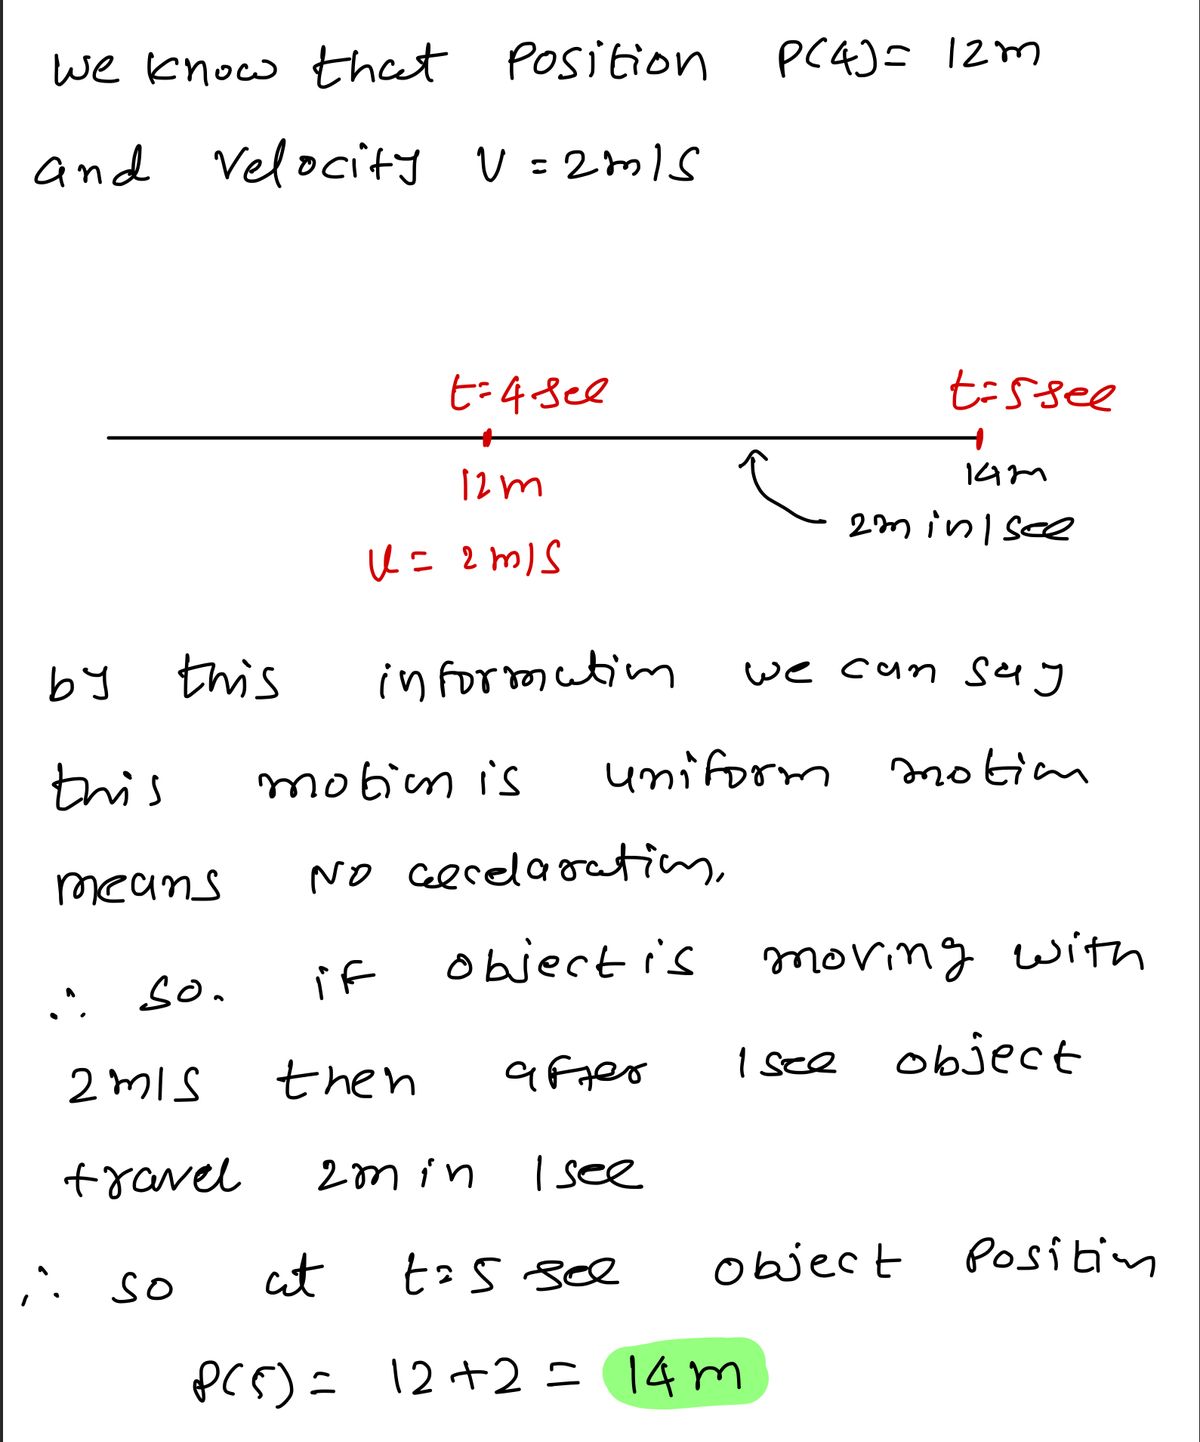 we know that Position P(4)= 12m
and velocity v = 2m/s
t=4sec t=5sec
12m 14m
2m in 1 sec
u= 2 m/s
by this information we can say
this motion is uniform motion
means No accelaration.
∴ so. if object is moving with
2m/s then after 1 sec object
travel 2m in 1 sec
∴ so at t=5 sec object Position
P(5)= 12+2 = 14m